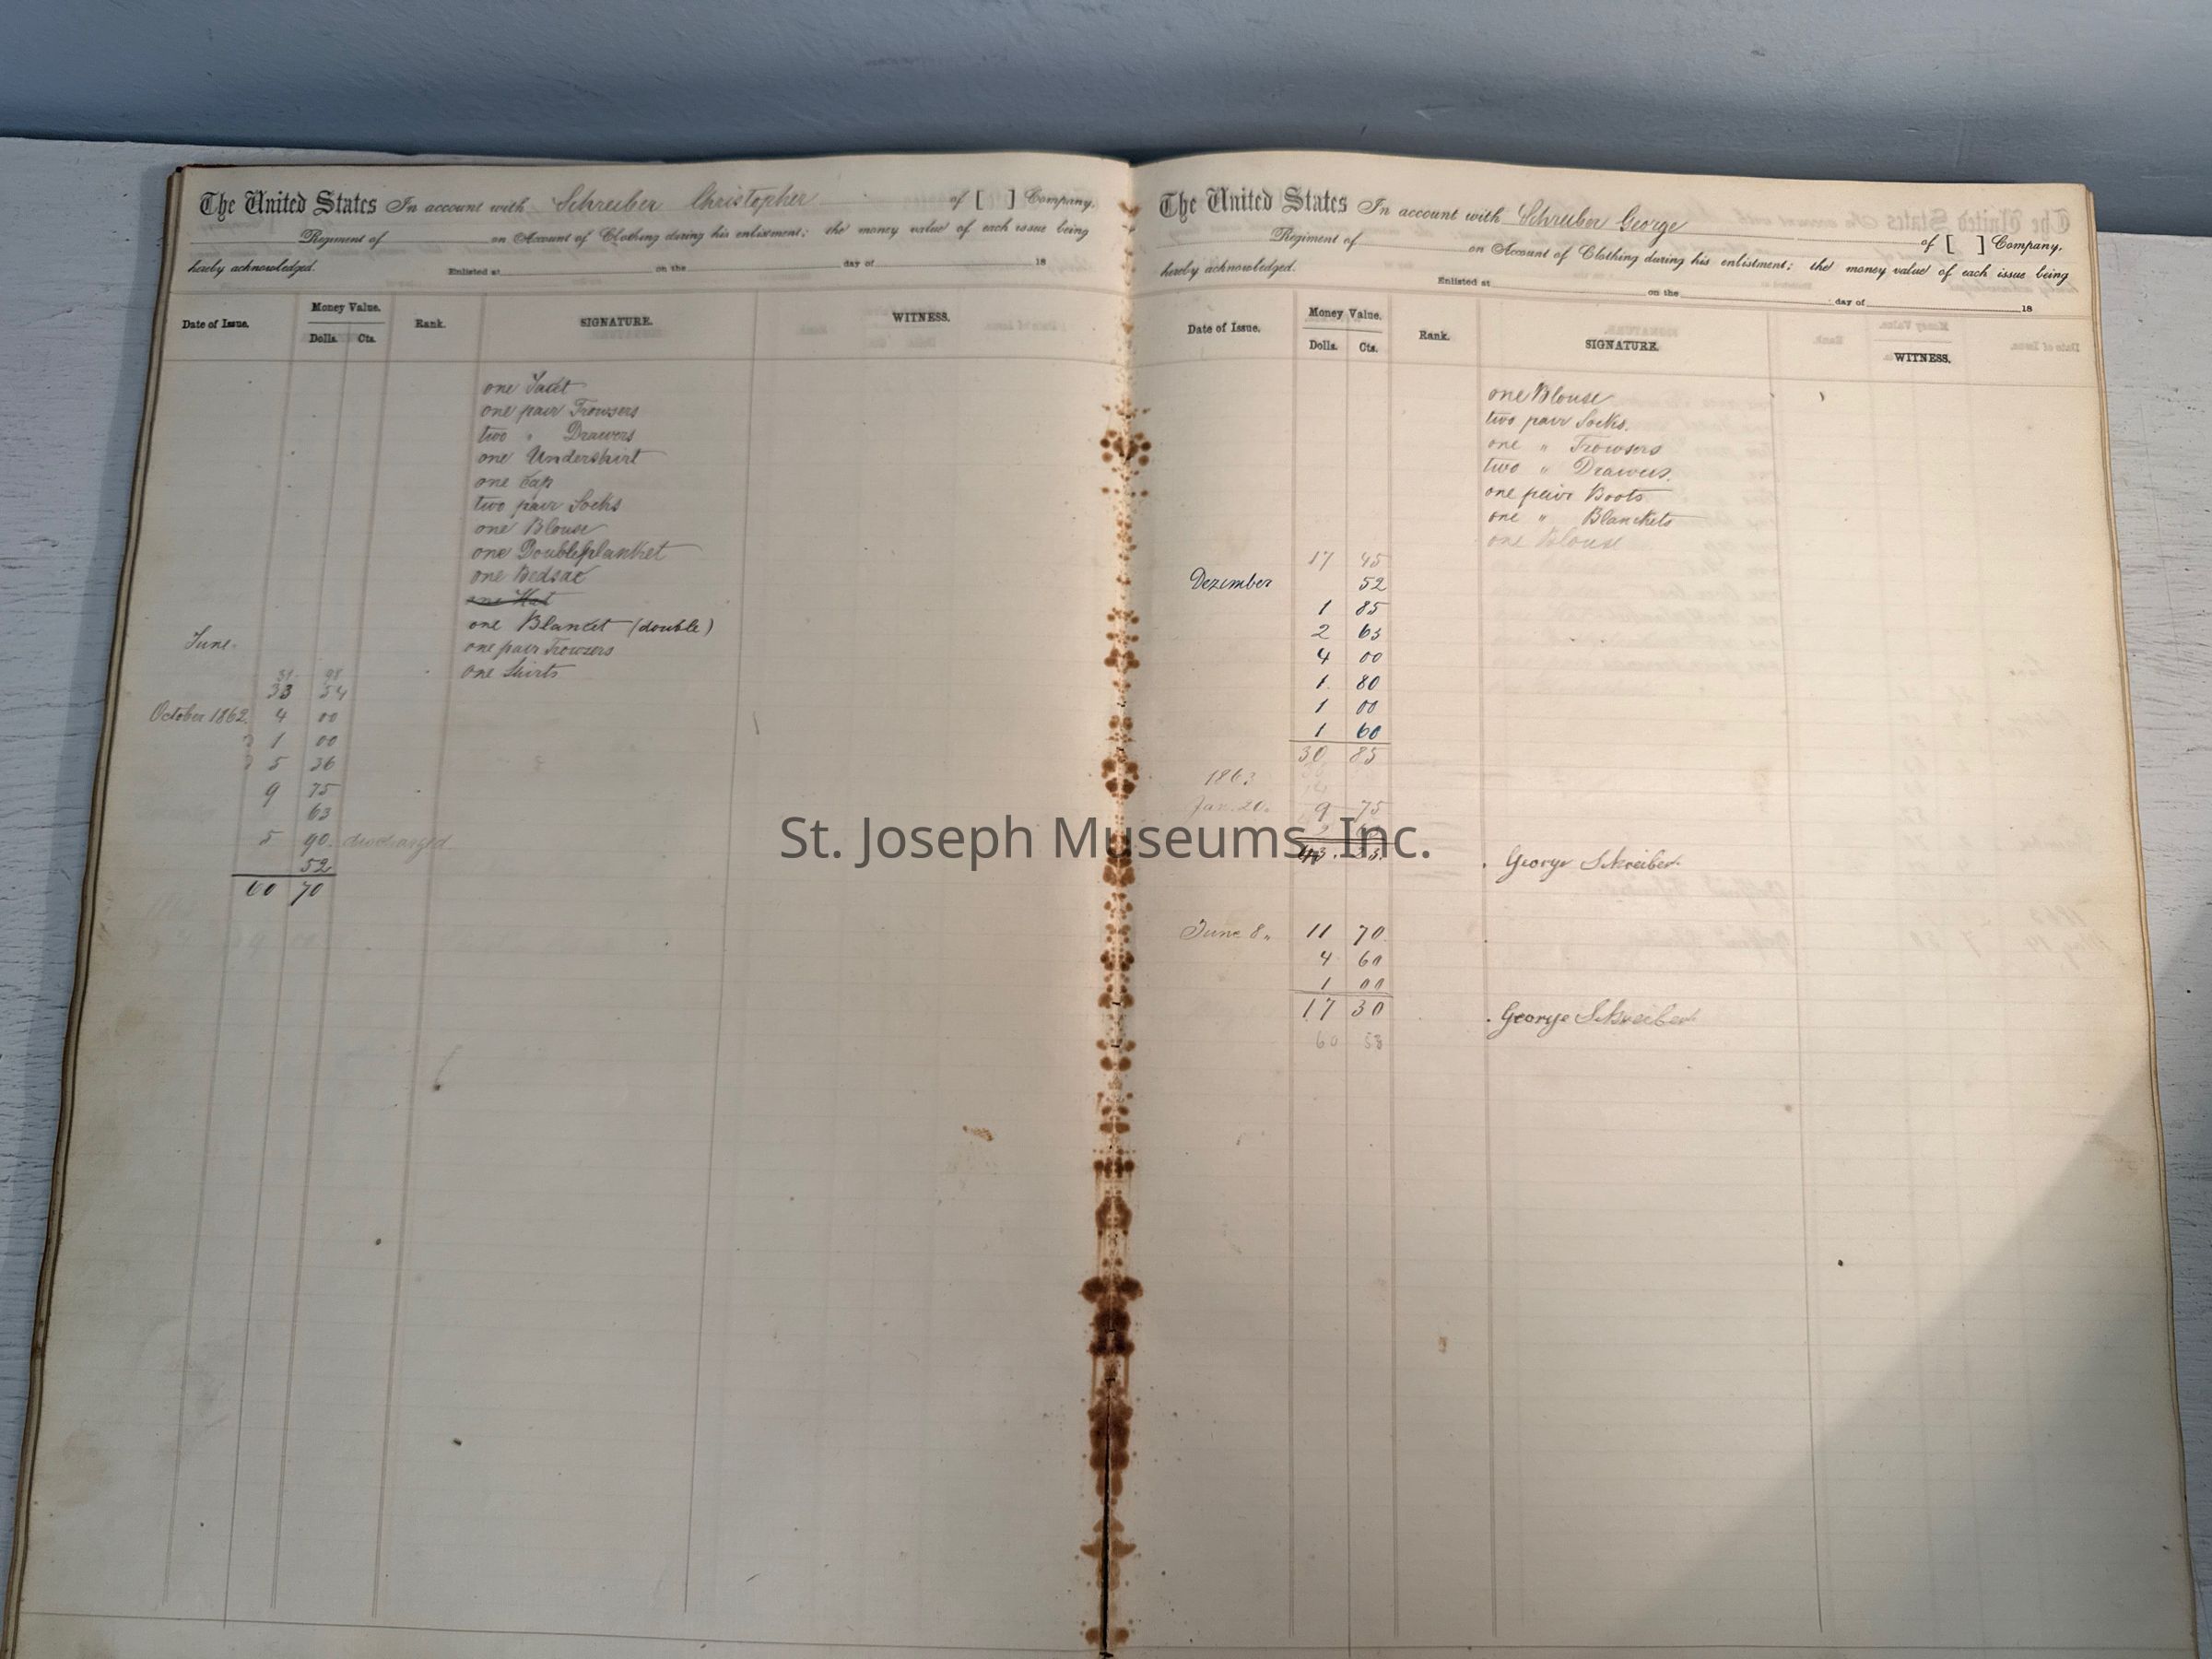 The United States In account with Schreiber Christopher of [ ] Company,
Regiment of on Account of Clothing during his enlistment; the money value of each issue being
hereby acknowledged. Enlisted at on the day of 18
Date of Issue. Money Value. Rank. SIGNATURE. WITNESS.
Dolls. Cts.
one
one pair Trowsers
two " Drawers
one Undershirt
one Cap
two pair Socks
one Blouse
one Doubleplanket
one Bedsac
one Hat
one Blanket (double)
June one pair Trowsers
one Shirts
33 54
October 1862. 4 00
1 00
5 36
9 75
63
5 90. discharged
52
60 70
The United States In account with Schreiber George of [ ] Company,
Regiment of on Account of Clothing during his enlistment; the money value of each issue being
hereby acknowledged. Enlisted at on the day of 18
Date of Issue. Money Value. Rank. SIGNATURE. WITNESS.
Dolls. Cts.
one Blouse
two pair Socks.
one " Trowsers
two " Drawers.
one pair Boots
one " Blanckets
one Blouse
17 45
Dezember 52
1 85
2 63
4 00
1 80
1 00
1 60
30 85
1863
Jan. 20. 9 75
George Schreiber.
June 8" 11 70
4 60
1 00
17 30 George Schreiber
60 53
St. Joseph Museums, Inc.